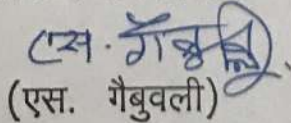 एस. गैबुवली
(एस. गैबुवली)